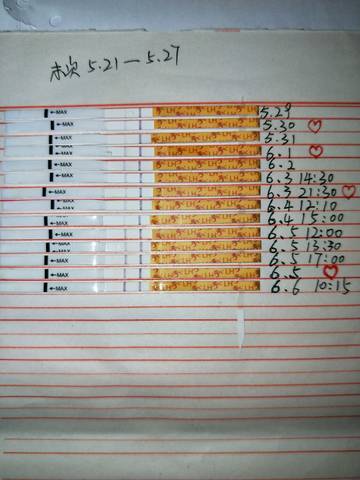 末次 5.21—5.27
←MAX LH 5.29
←MAX LH 5.30 ♡
←MAX LH 5.31
←MAX LH 6.1 ♡
←MAX LH 6.2
←MAX LH 6.3 14:30
←MAX LH 6.3 21:30 ♡
←MAX LH 6.4 12:10
←MAX LH 6.4 15:00
←MAX LH 6.5 12:00
←MAX LH 6.5 13:30
←MAX LH 6.5 17:00
←MAX LH 6.5 ♡
←MAX LH 6.6 10:15